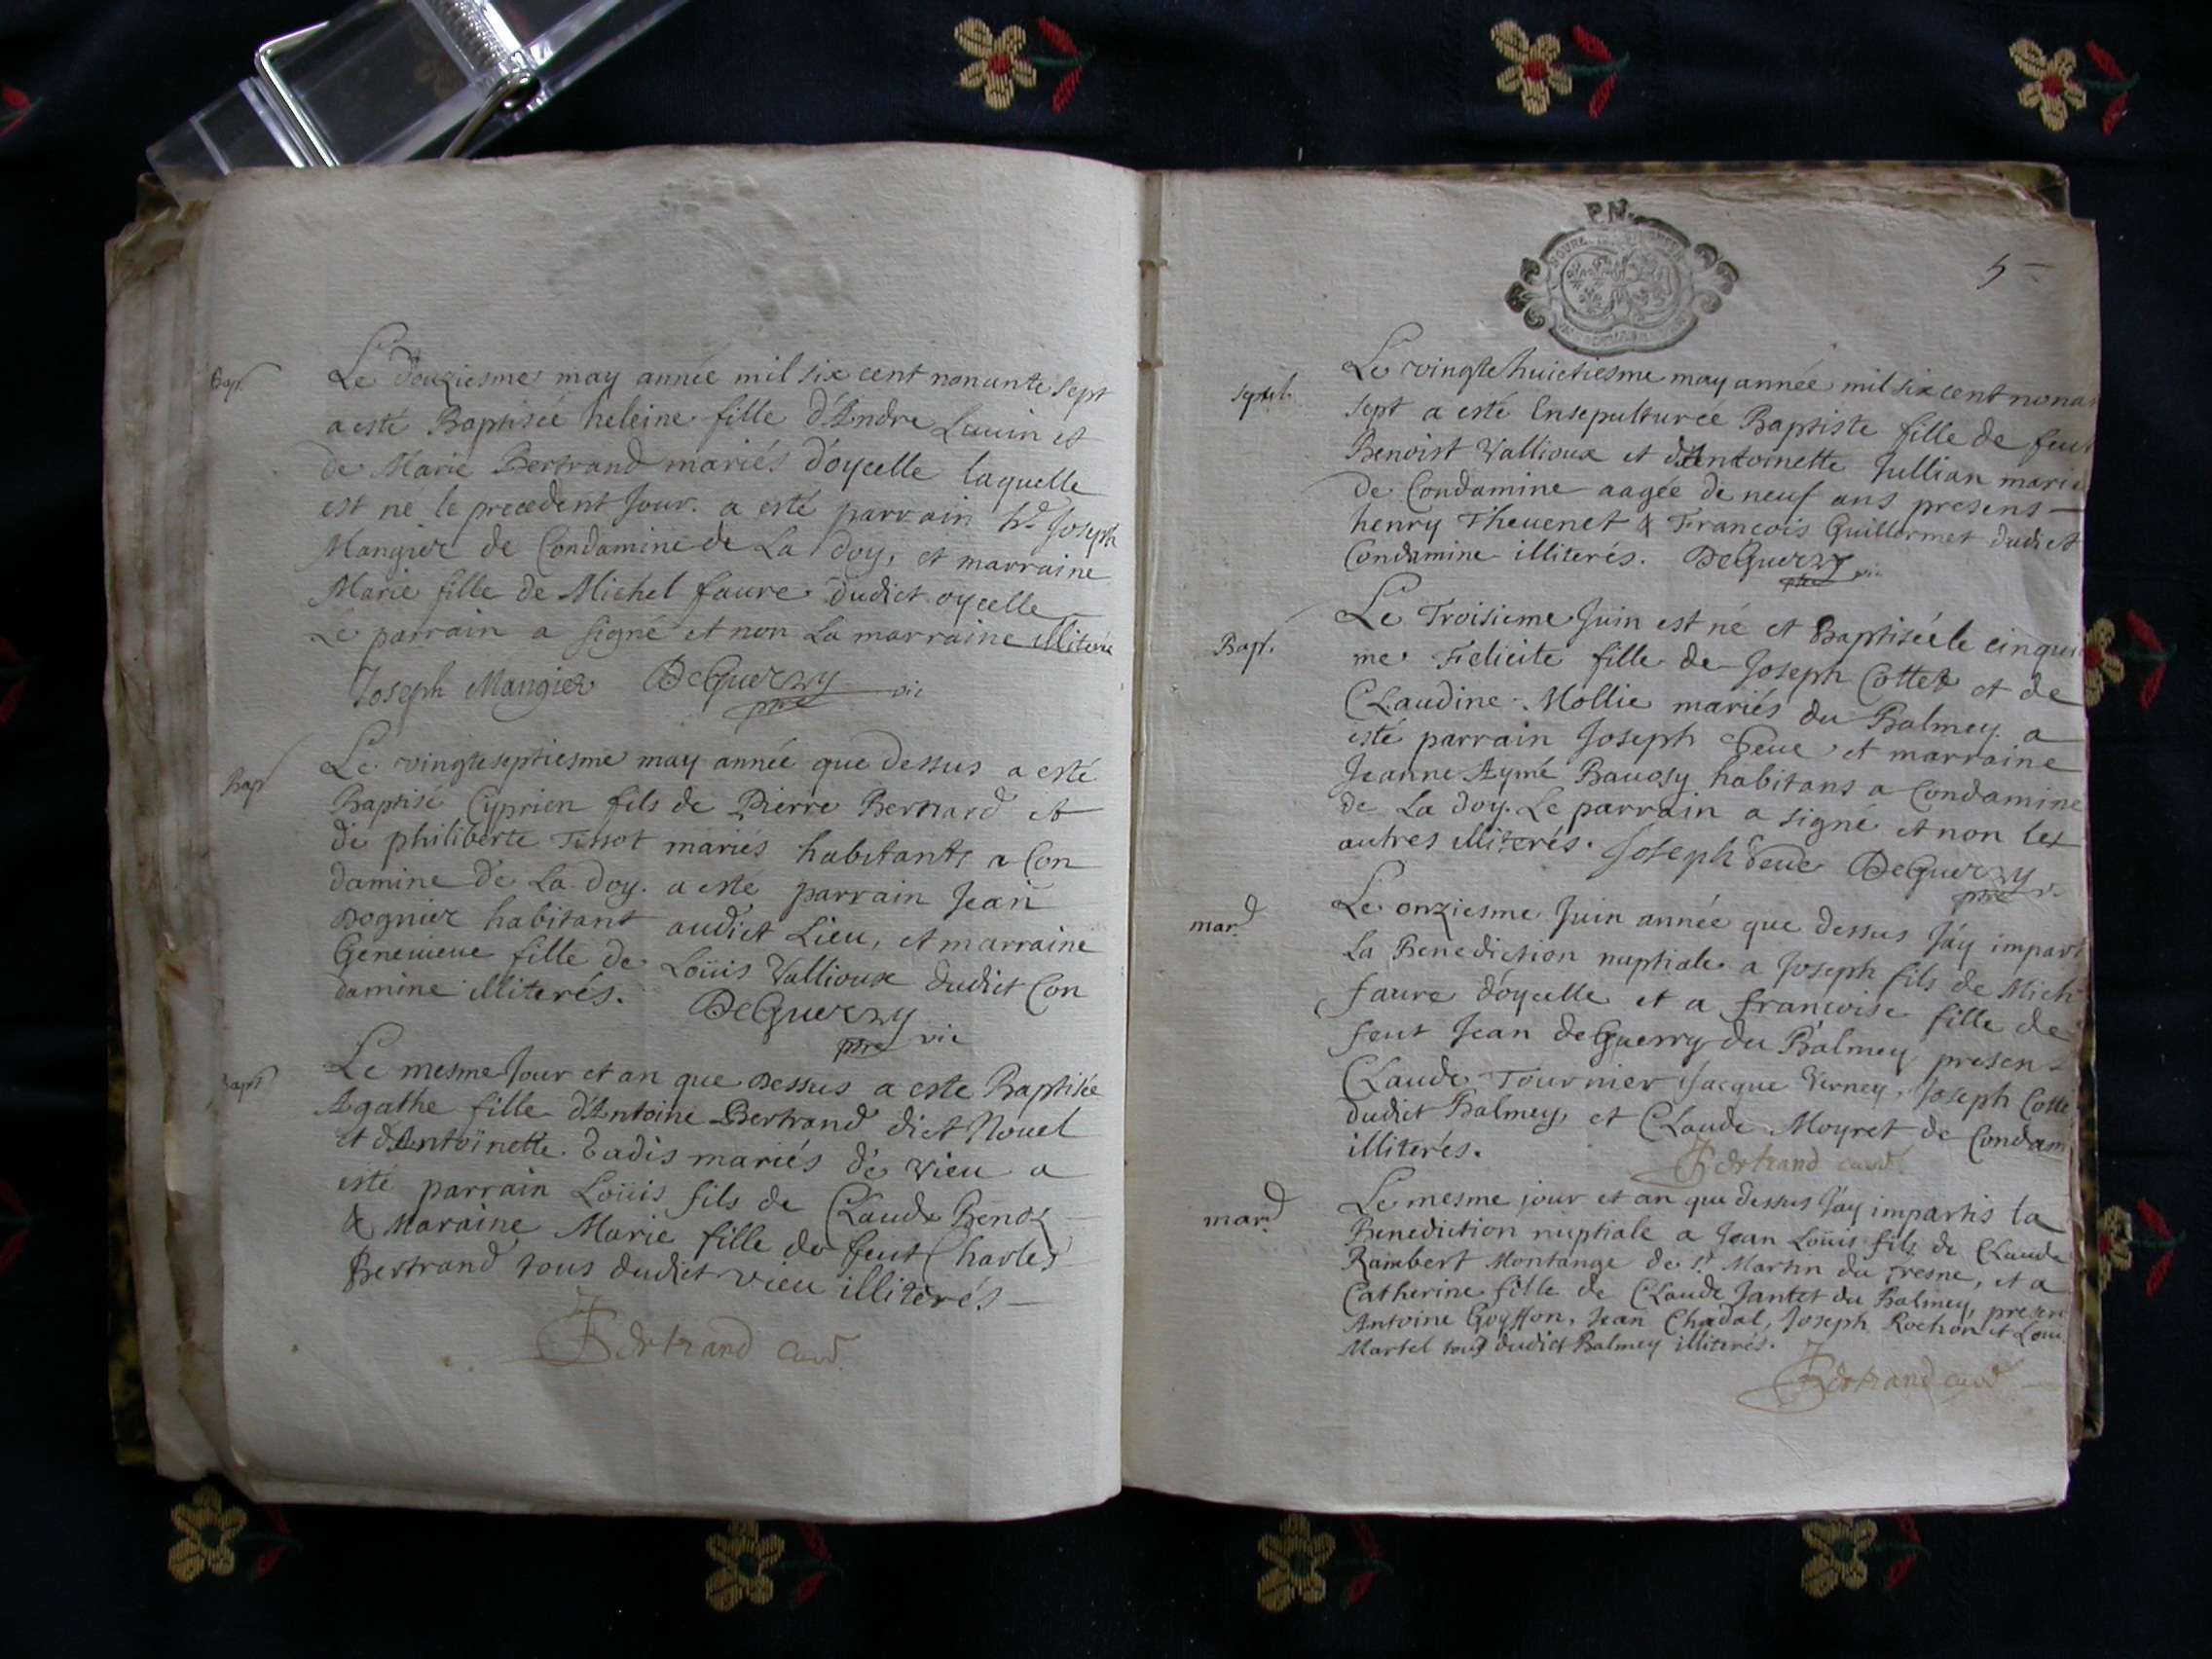 Bap.
Le douziesme may année mil six cent nonante sept
a esté Baptisée heleine fille d'Andre Lauin et
de Marie Bertrand mariés d'oycelle laquelle
est ne le precedent Jour. a esté parrain hd. Joseph
Mangier de Condamine de La doy, et marraine
Marie fille de Michel faure dudict oycelle
Le parrain a signé et non La marraine illiterée
Joseph Mangier DeGuerry vic
ptre
Bap
Le vingteseptiesme may année que dessus a esté
Baptisé Cyprien fils de Pierre Bernard et
de philiberte Tissot mariés habitants a Con
damine de La doy. a esté parrain Jean
Dognier habitant audict Lieu, et marraine
Geneuieue fille de Loüis Vallioux dudict Con
damine illiterés. DeGuerry
ptre vic
Bapt
Le mesme Jour et an que Dessus a este Baptisée
Agathe fille d'Antoine Bertrand dict Nouel
et d'Antoinette Tadis mariés de vieu a
esté parrain Loüis fils de Claude Benoz
& Maraine Marie fille de feut Charles
Bertrand tous dudict vieu illiterés
Bertrand curé.
P.N.
5
sepul.
Le vingtehuictiesme may année mil six cent nonan
sept a esté Ensepulturée Baptiste fille de feu
Benoist Vallioux et d'Antoinette Jullian marié
de Condamine aagée de neuf ans presens
henry Theuenet & Francois Guillermet dudict
Condamine illiterés. DeGuerry vic
ptre
Bapt.
Le Troisieme Juin est né et Baptisée le cinquie
me Felicite fille de Joseph Cottet et de
Claudine Mollie mariés du Balmey. a
esté parrain Joseph Seue et marraine
Jeanne Aymé Bauosy habitans a Condamine
de La doy. Le parrain a signé et non les
autres illiterés. Joseph Seue DeGuerry
ptre v.
mar.
Le onziesme Juin année que dessus J'ay impart
La Benediction nuptiale a Joseph fils de Mich
faure d'oycelle et a francoise fille de
feut Jean deGuerry du Balmey presen
Claude Tournier Jacque Verney, Joseph Cotte
dudict Balmey, et Claude Moyret de Condam
illiterés.
Bertrand curé
mar.
Le mesme jour et an que dessus J'ay impartis la
Benediction nuptiale a Jean Loüis fils de Claude
Rambert Montange de St Martin du Fresne, et a
Catherine fille de Claude Jantet du Balmey, presen
Antoine Goyffon, Jean Chadal, Joseph Rochon et Loui
Martel tous dudict Balmey illiterés.
Bertrand curé